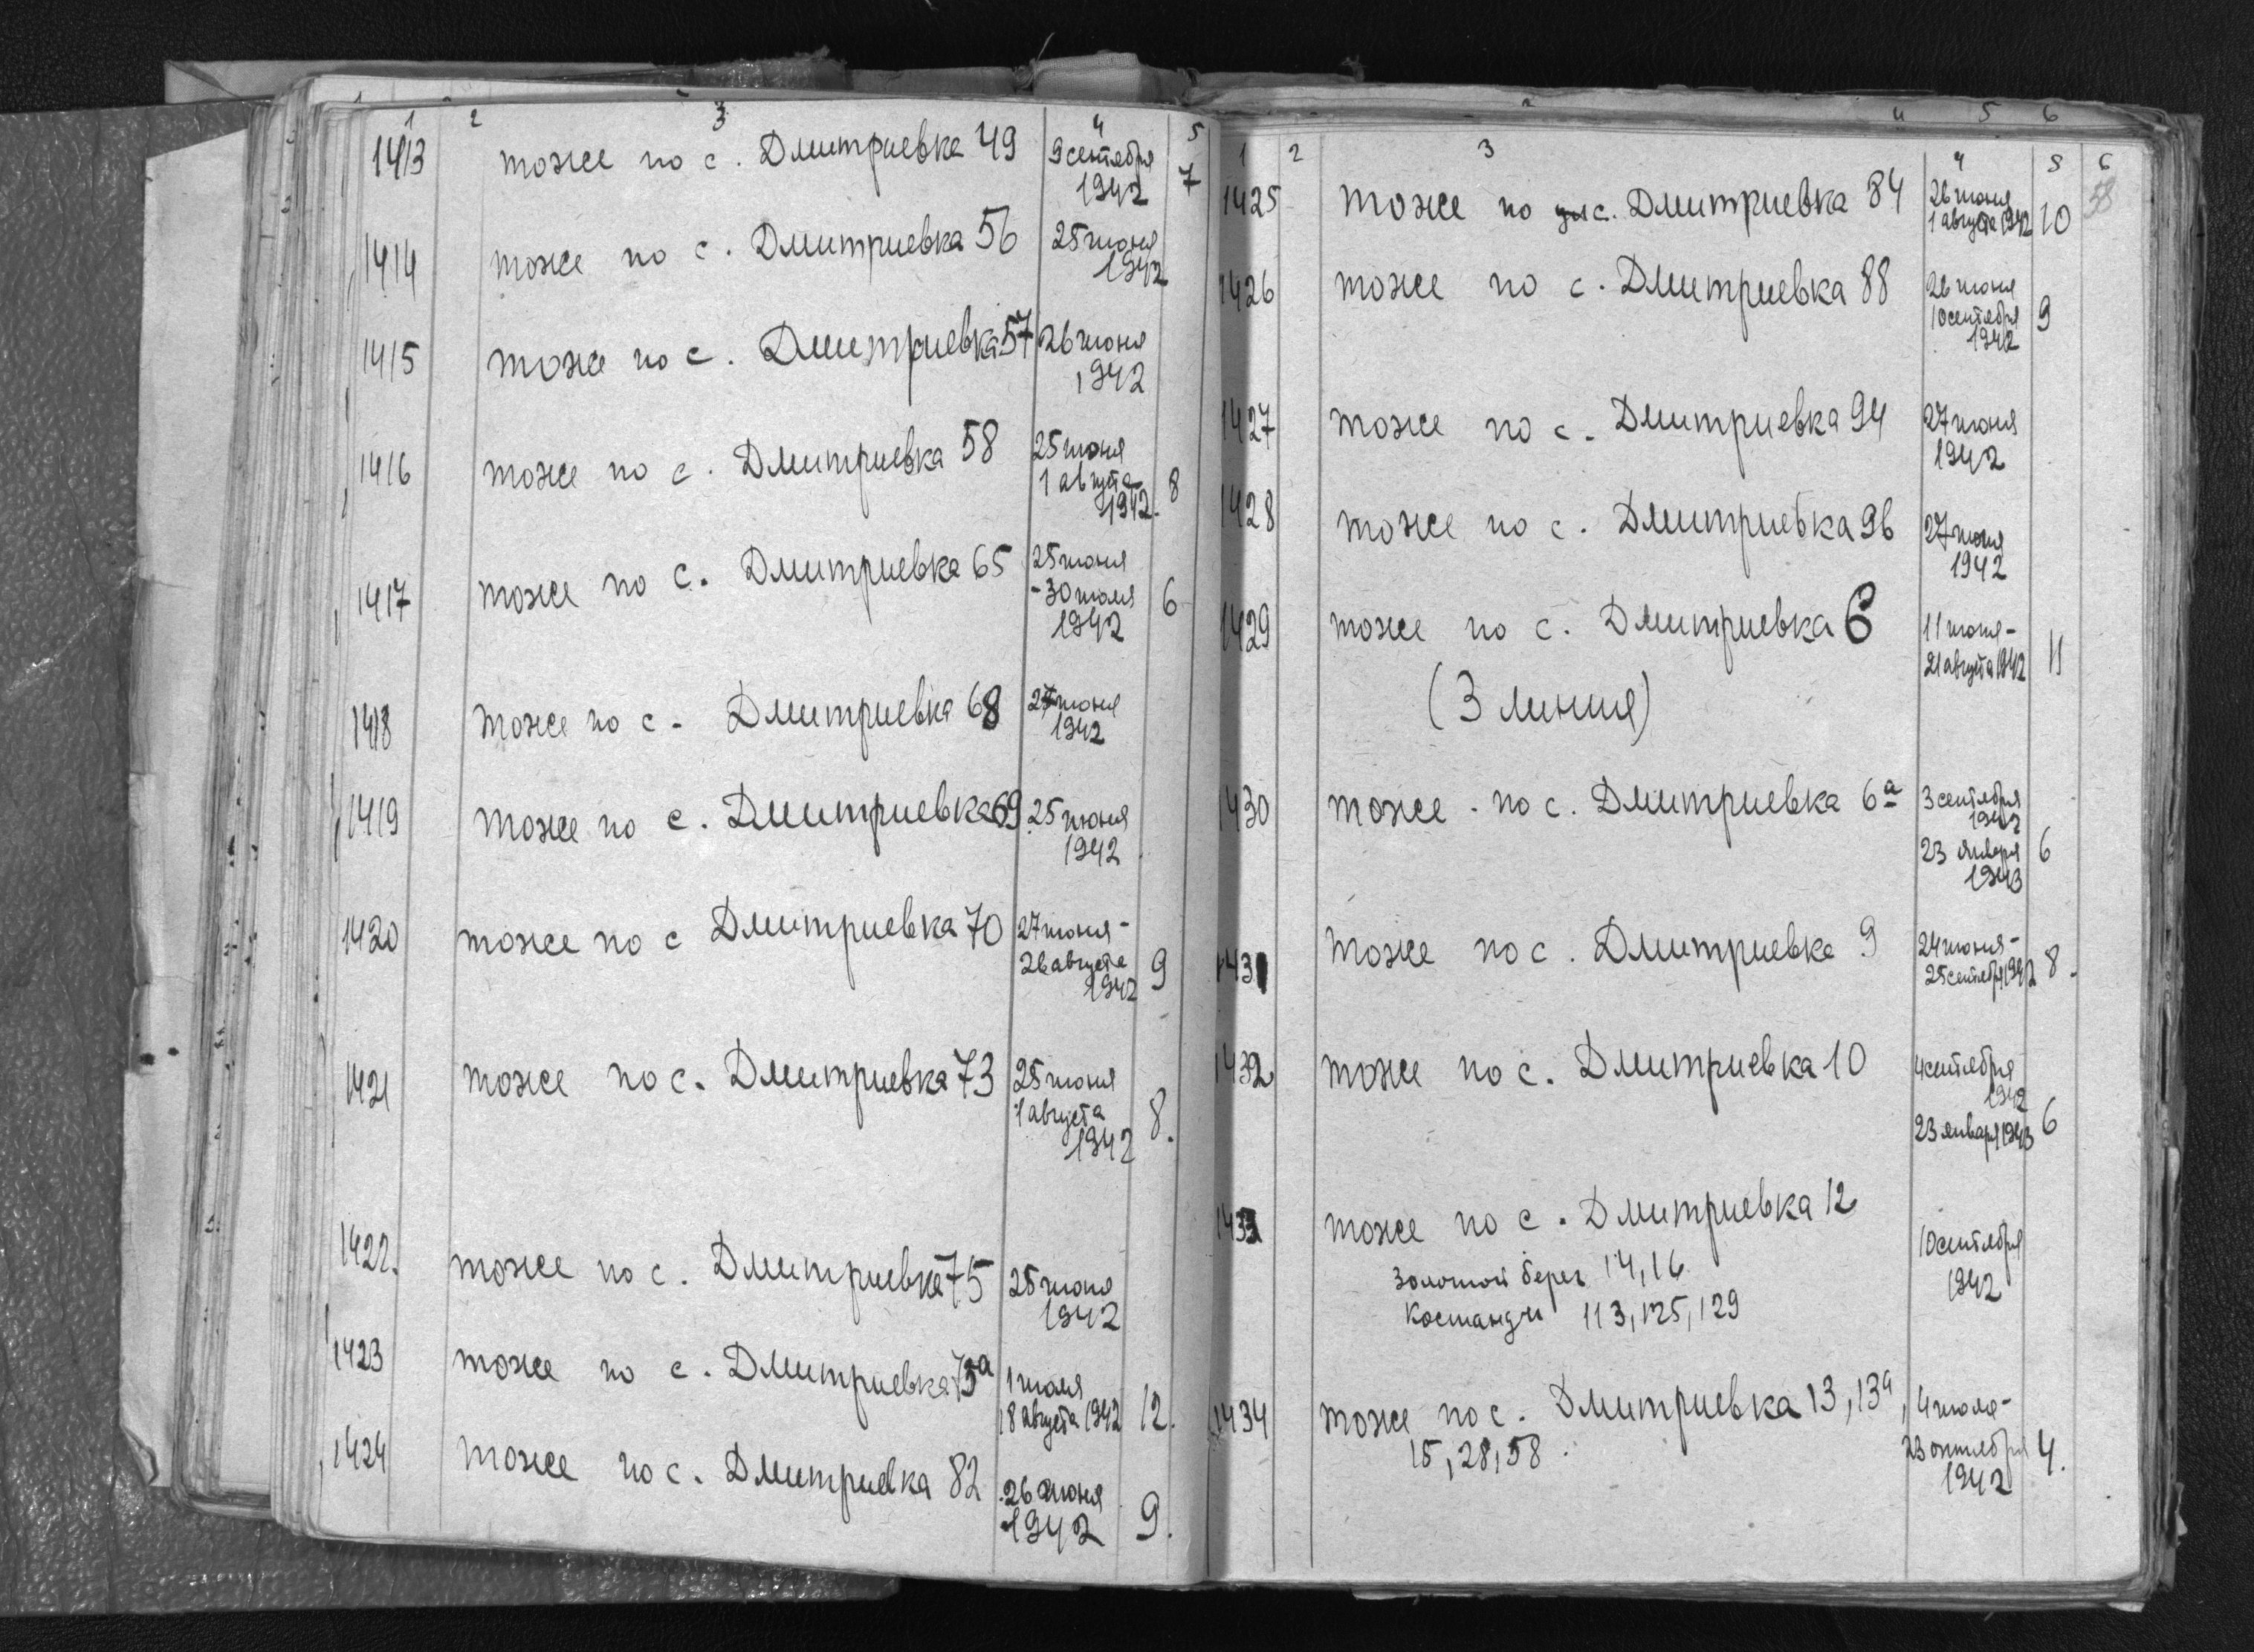 1 2 3 4 5
1413 тоже по с. Дмитриевка 49 9 сентября
1942 7
1414 тоже по с. Дмитриевка 56 25 июня
1942
1415 тоже по с. Дмитриевка 57 26 июня
1942
1416 тоже по с. Дмитриевка 58 25 июня
1 августа
1942. 8
1417 тоже по с. Дмитриевка 65 25 июня
-30 июля 6
1942
1418 тоже по с. Дмитриевка 68 27 июня
1942
1419 тоже по с. Дмитриевка 69 25 июня
1942
1420 тоже по с Дмитриевка 70 27 июня-
26 августа
1942 9
1421 тоже по с. Дмитриевка 73 25 июня
1 августа
1942 8.
1422. тоже по с. Дмитриевка 75 25 июня
1942
1423 тоже по с. Дмитриевка 75а 1 июля
18 августа 1942 12.
1424 тоже по с. Дмитриевка 82 26 июня
1942 9.
4 5 6
1 2 3 4 5 6
58
1425 тоже по с. Дмитриевка 84 26 июня
1 августа 1942 10
1426 тоже по с. Дмитриевка 88 26 июня
10 сентября 9
1942
1427 тоже по с. Дмитриевка 94 27 июня
1942
1428 тоже по с. Дмитриевка 96 27 июня
1942
1429 тоже по с. Дмитриевка 6 11 июня-
21 августа 1942 11
(3 линия)
1430 тоже по с. Дмитриевка 6а 3 сентября
1942
23 января 6
1943
1431 тоже по с. Дмитриевка 9 24 июня-
25 сентября 1942 8.
1432 тоже по с. Дмитриевка 10 4 сентября
1942
23 января 1943 6
1433 тоже по с. Дмитриевка 12
Золотой берег 14, 16 10 сентября
Костанди 113, 125, 129 1942
1434 тоже по с. Дмитриевка 13, 13а, 4 июля-
15, 28, 58. 23 октября 4.
1942